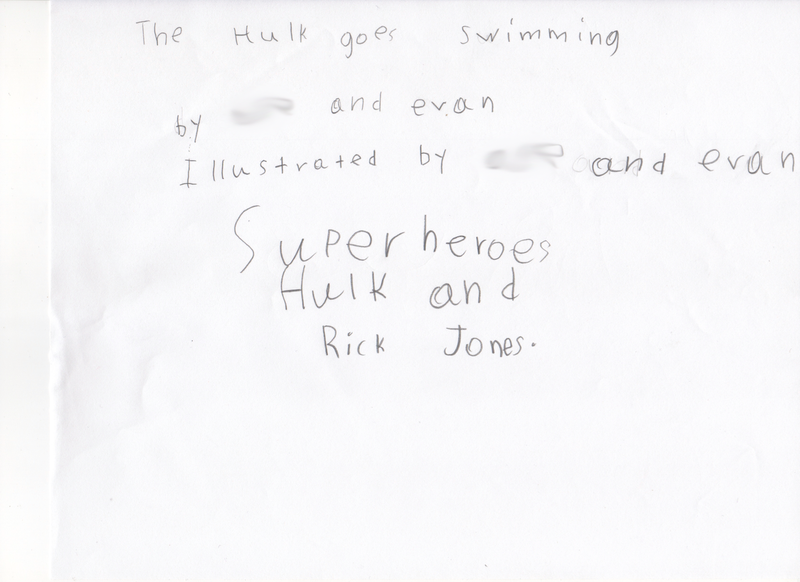 The Hulk goes swimming
by and evan
Illustrated by and evan
Superheroes
Hulk and
Rick Jones.